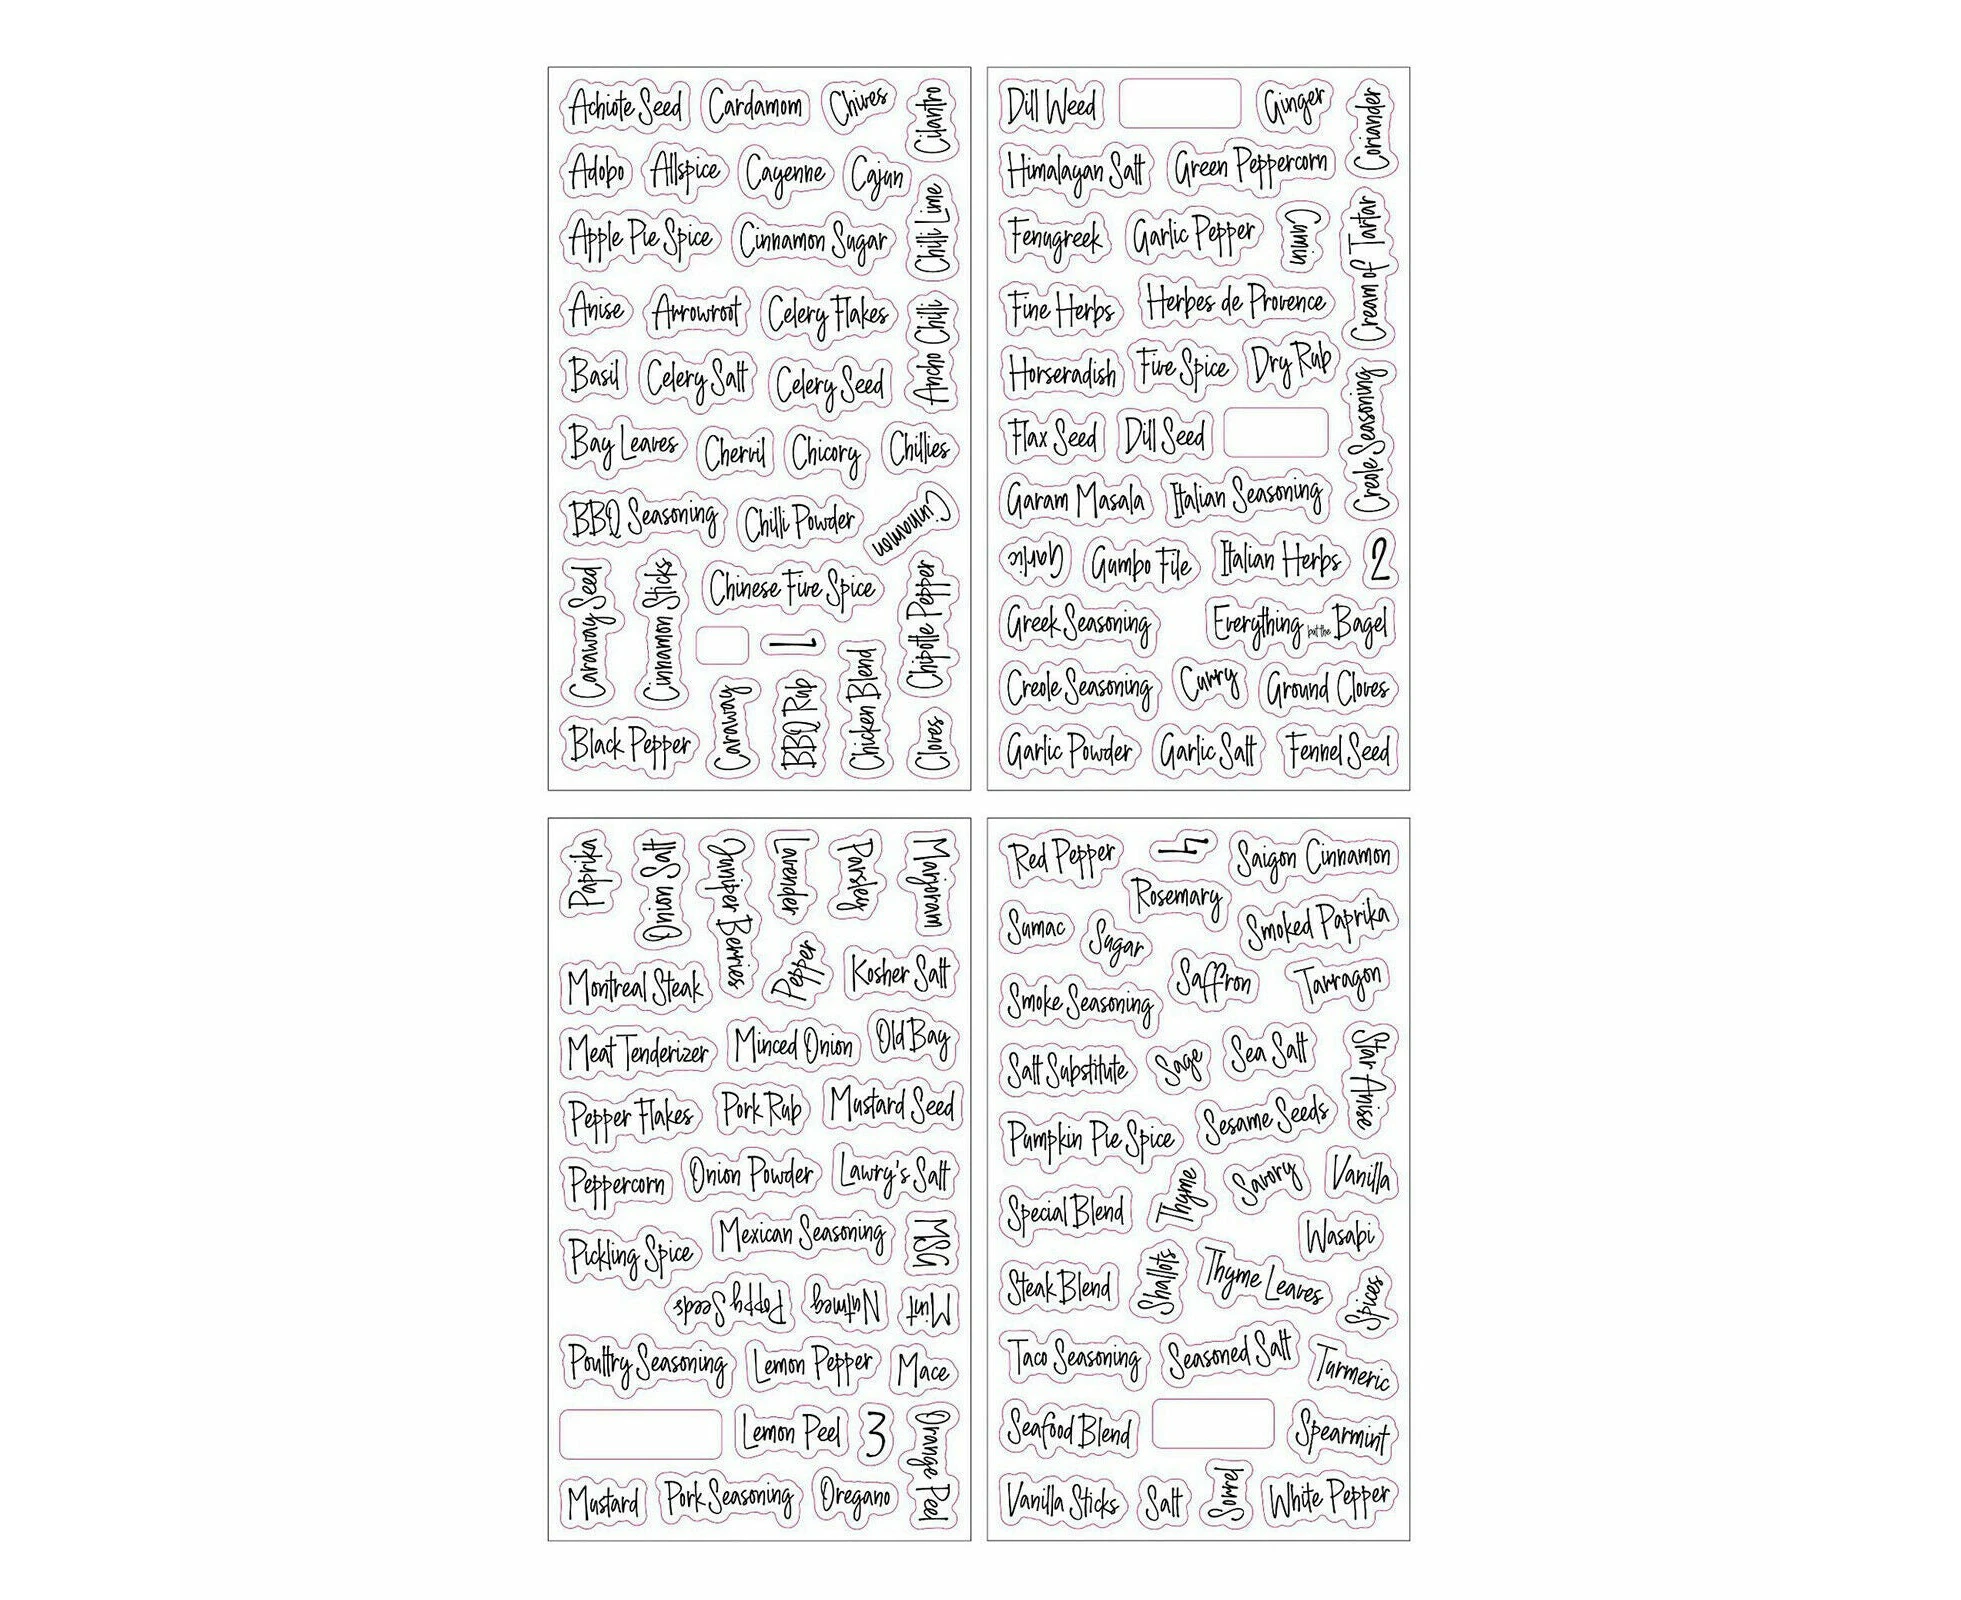 Achiote Seed
Cardamom
Chives
Cilantro
Adobo
Allspice
Cayenne
Cajun
Chilli Lime
Apple Pie Spice
Cinnamon Sugar
Anise
Arrowroot
Celery Flakes
Ancho Chilli
Basil
Celery Salt
Celery Seed
Bay Leaves
Chervil
Chicory
Chillies
BBQ Seasoning
Chilli Powder
Cinnamon
Caraway Seed
Cinnamon Sticks
Chinese Five Spice
Chipotle Pepper
1
Black Pepper
Caraway
BBQ Rub
Chicken Blend
Cloves
Dill Weed
Ginger
Coriander
Himalayan Salt
Green Peppercorn
Fenugreek
Garlic Pepper
Cumin
Cream of Tartar
Fine Herbs
Herbes de Provence
Horseradish
Five Spice
Dry Rub
Creole Seasoning
Flax Seed
Dill Seed
Garam Masala
Italian Seasoning
Garlic
Gumbo File
Italian Herbs
2
Greek Seasoning
Everything but the Bagel
Creole Seasoning
Curry
Ground Cloves
Garlic Powder
Garlic Salt
Fennel Seed
Paprika
Onion Salt
Juniper Berries
Lavender
Parsley
Marjoram
Montreal Steak
Pepper
Kosher Salt
Meat Tenderizer
Minced Onion
Old Bay
Pepper Flakes
Pork Rub
Mustard Seed
Peppercorn
Onion Powder
Lawry's Salt
Pickling Spice
Mexican Seasoning
MSG
Poppy Seeds
Nutmeg
Mint
Poultry Seasoning
Lemon Pepper
Mace
Lemon Peel
3
Orange Peel
Mustard
Pork Seasoning
Oregano
Red Pepper
4
Saigon Cinnamon
Rosemary
Sumac
Sugar
Smoked Paprika
Smoke Seasoning
Saffron
Tarragon
Salt Substitute
Sage
Sea Salt
Star Anise
Pumpkin Pie Spice
Sesame Seeds
Special Blend
Thyme
Savory
Vanilla
Wasabi
Steak Blend
Shallots
Thyme Leaves
Spices
Taco Seasoning
Seasoned Salt
Turmeric
Seafood Blend
Spearmint
Vanilla Sticks
Salt
Sorrel
White Pepper